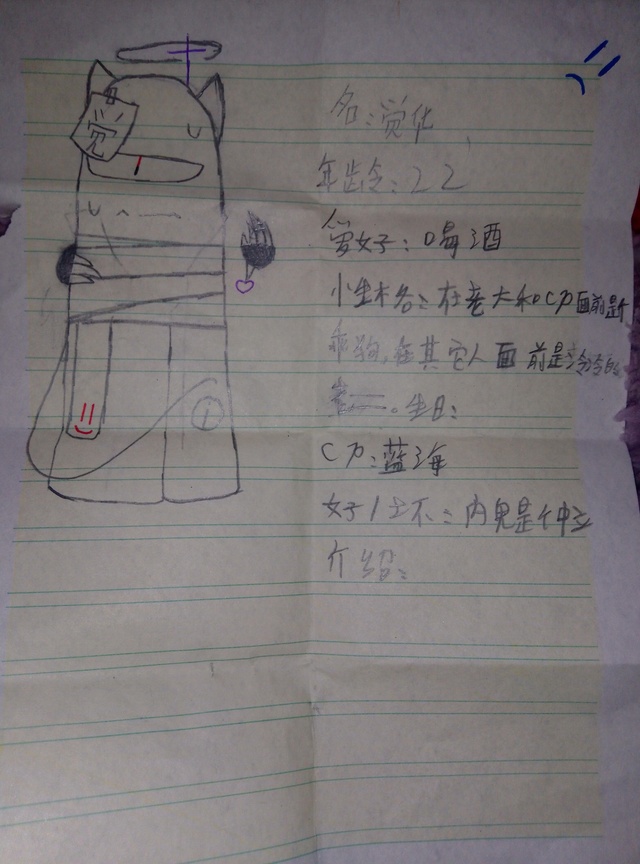 觉
名:觉化
年龄:22
爱好:喝酒
性格:在老大和CP面前是个
乖狗,在其它人面前是冷冷的
生日:
CP:蓝海
好/坏:内鬼是仲立
介绍: